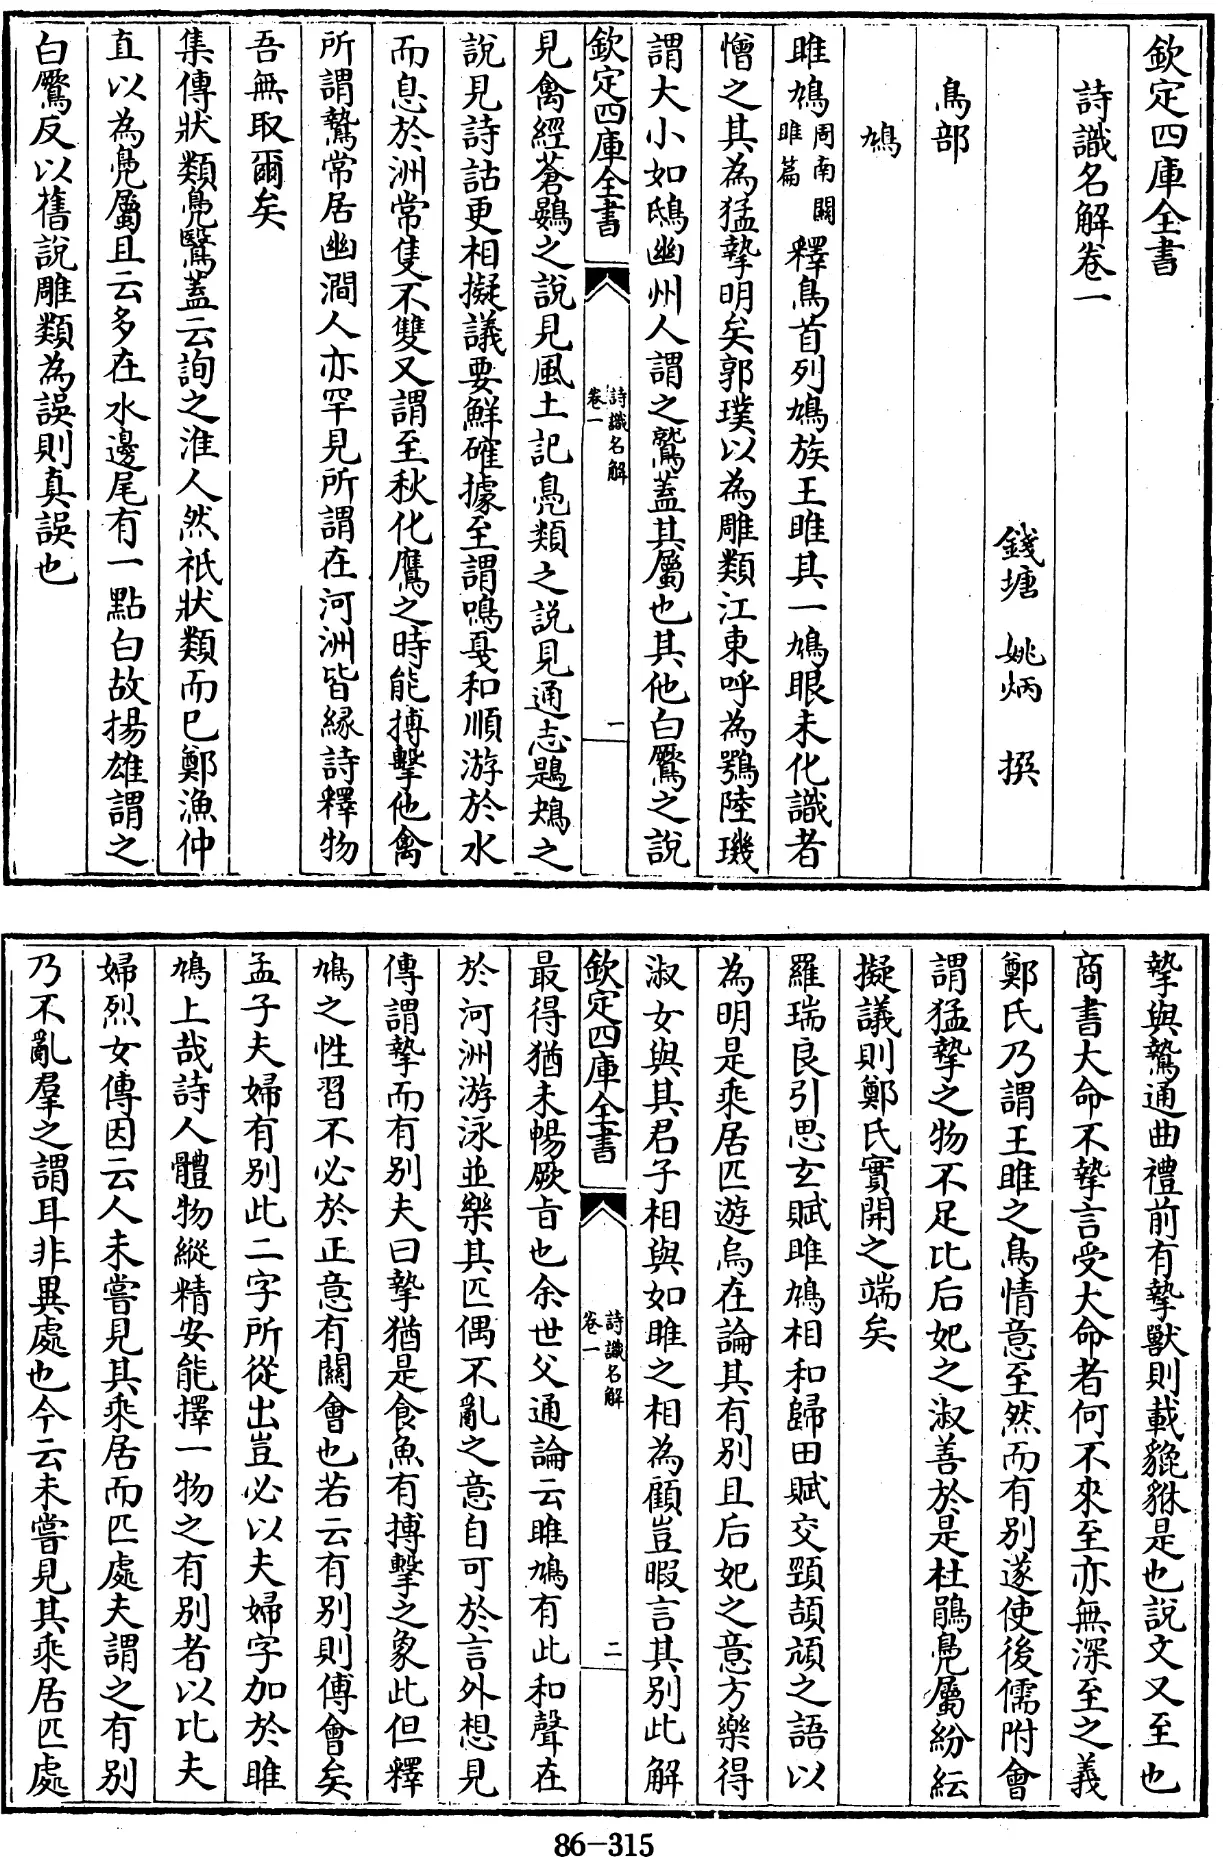 欽定四庫全書
詩識名解卷一
錢塘 姚炳 撰
鳥部
鳩
雎鳩周南關雎篇 釋鳥首列鳩族王雎其一鳩眼未化識者
憎之其為猛摯明矣郭璞以為雕類江東呼為鶚陸璣
謂大小如鴟幽州人謂之鷲蓋其屬也其他白鷢之說
欽定四庫全書
詩識名解
卷一
一
見禽經蒼鷃之說見風土記鳧類之說見通志鶗鴂之
說見詩詁更相擬議要鮮確據至謂鳴戛和順游於水
而息於洲常隻不雙又謂至秋化鷹之時能搏擊他禽
所謂鷙常居幽澗人亦罕見所謂在河洲皆緣詩釋物
吾無取爾矣
集傳狀類鳧鷖蓋云詢之淮人然祇狀類而已鄭漁仲
直以為鳧屬且云多在水邊尾有一點白故揚雄謂之
白鷢反以舊說雕類為誤則真誤也
摯與鷙通曲禮前有摯獸則載貔貅是也說文又至也
商書大命不摯言受大命者何不來至亦無深至之義
鄭氏乃謂王雎之鳥情意至然而有別遂使後儒附會
謂猛摯之物不足比后妃之淑善於是杜鵑鳧屬紛紜
擬議則鄭氏實開之端矣
羅瑞良引思玄賦雎鳩相和歸田賦交頸頡頏之語以
為明是乘居匹遊烏在論其有別且后妃之意方樂得
淑女與其君子相與如雎之相為顧豈暇言其別此解
欽定四庫全書
詩識名解
卷一
二
最得猶未暢厥旨也余世父通論云雎鳩有此和聲在
於河洲游泳並樂其匹偶不亂之意自可於言外想見
傳謂摯而有别夫曰摯猶是食魚有搏擊之象此但釋
鳩之性習不必於正意有關會也若云有别則傅會矣
孟子夫婦有别此二字所從出豈必以夫婦字加於雎
鳩上哉詩人體物縱精安能擇一物之有别者以比夫
婦烈女傳因云人未嘗見其乘居而匹處夫謂之有别
乃不亂羣之謂耳非異處也今云未嘗見其乘居匹處
86-315